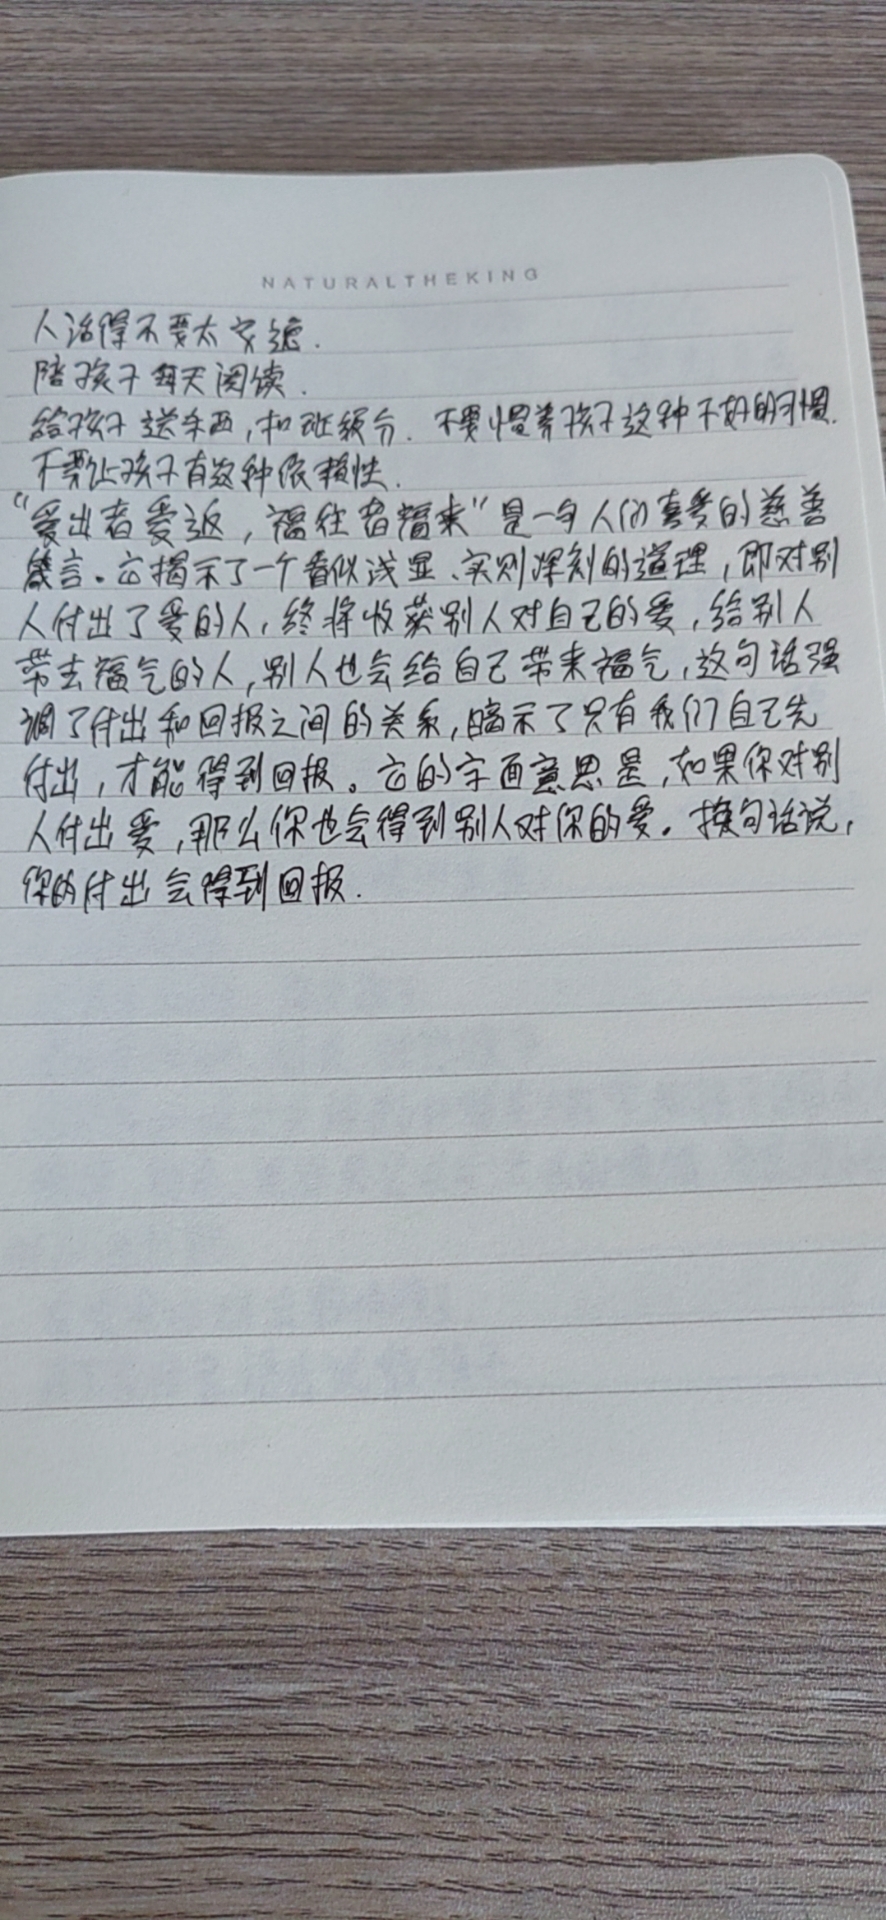 NATURALTHEKING
人活得不要太安逸.
陪孩子每天阅读.
给孩子送东西,扣班级分.不要惯养孩子这种不好的习惯.
不要让孩子有这种依赖性.
“爱出者爱返,福往者福来”是一句人们喜爱的慈善
箴言。它揭示了一个看似浅显、实则深刻的道理,即对别
人付出了爱的人,终将收获别人对自己的爱,给别人
带去福气的人,别人也会给自己带来福气,这句话强
调了付出和回报之间的关系,暗示了只有我们自己先
付出,才能得到回报。它的字面意思是,如果你对别
人付出爱,那么你也会得到别人对你的爱。换句话说,
你的付出会得到回报.